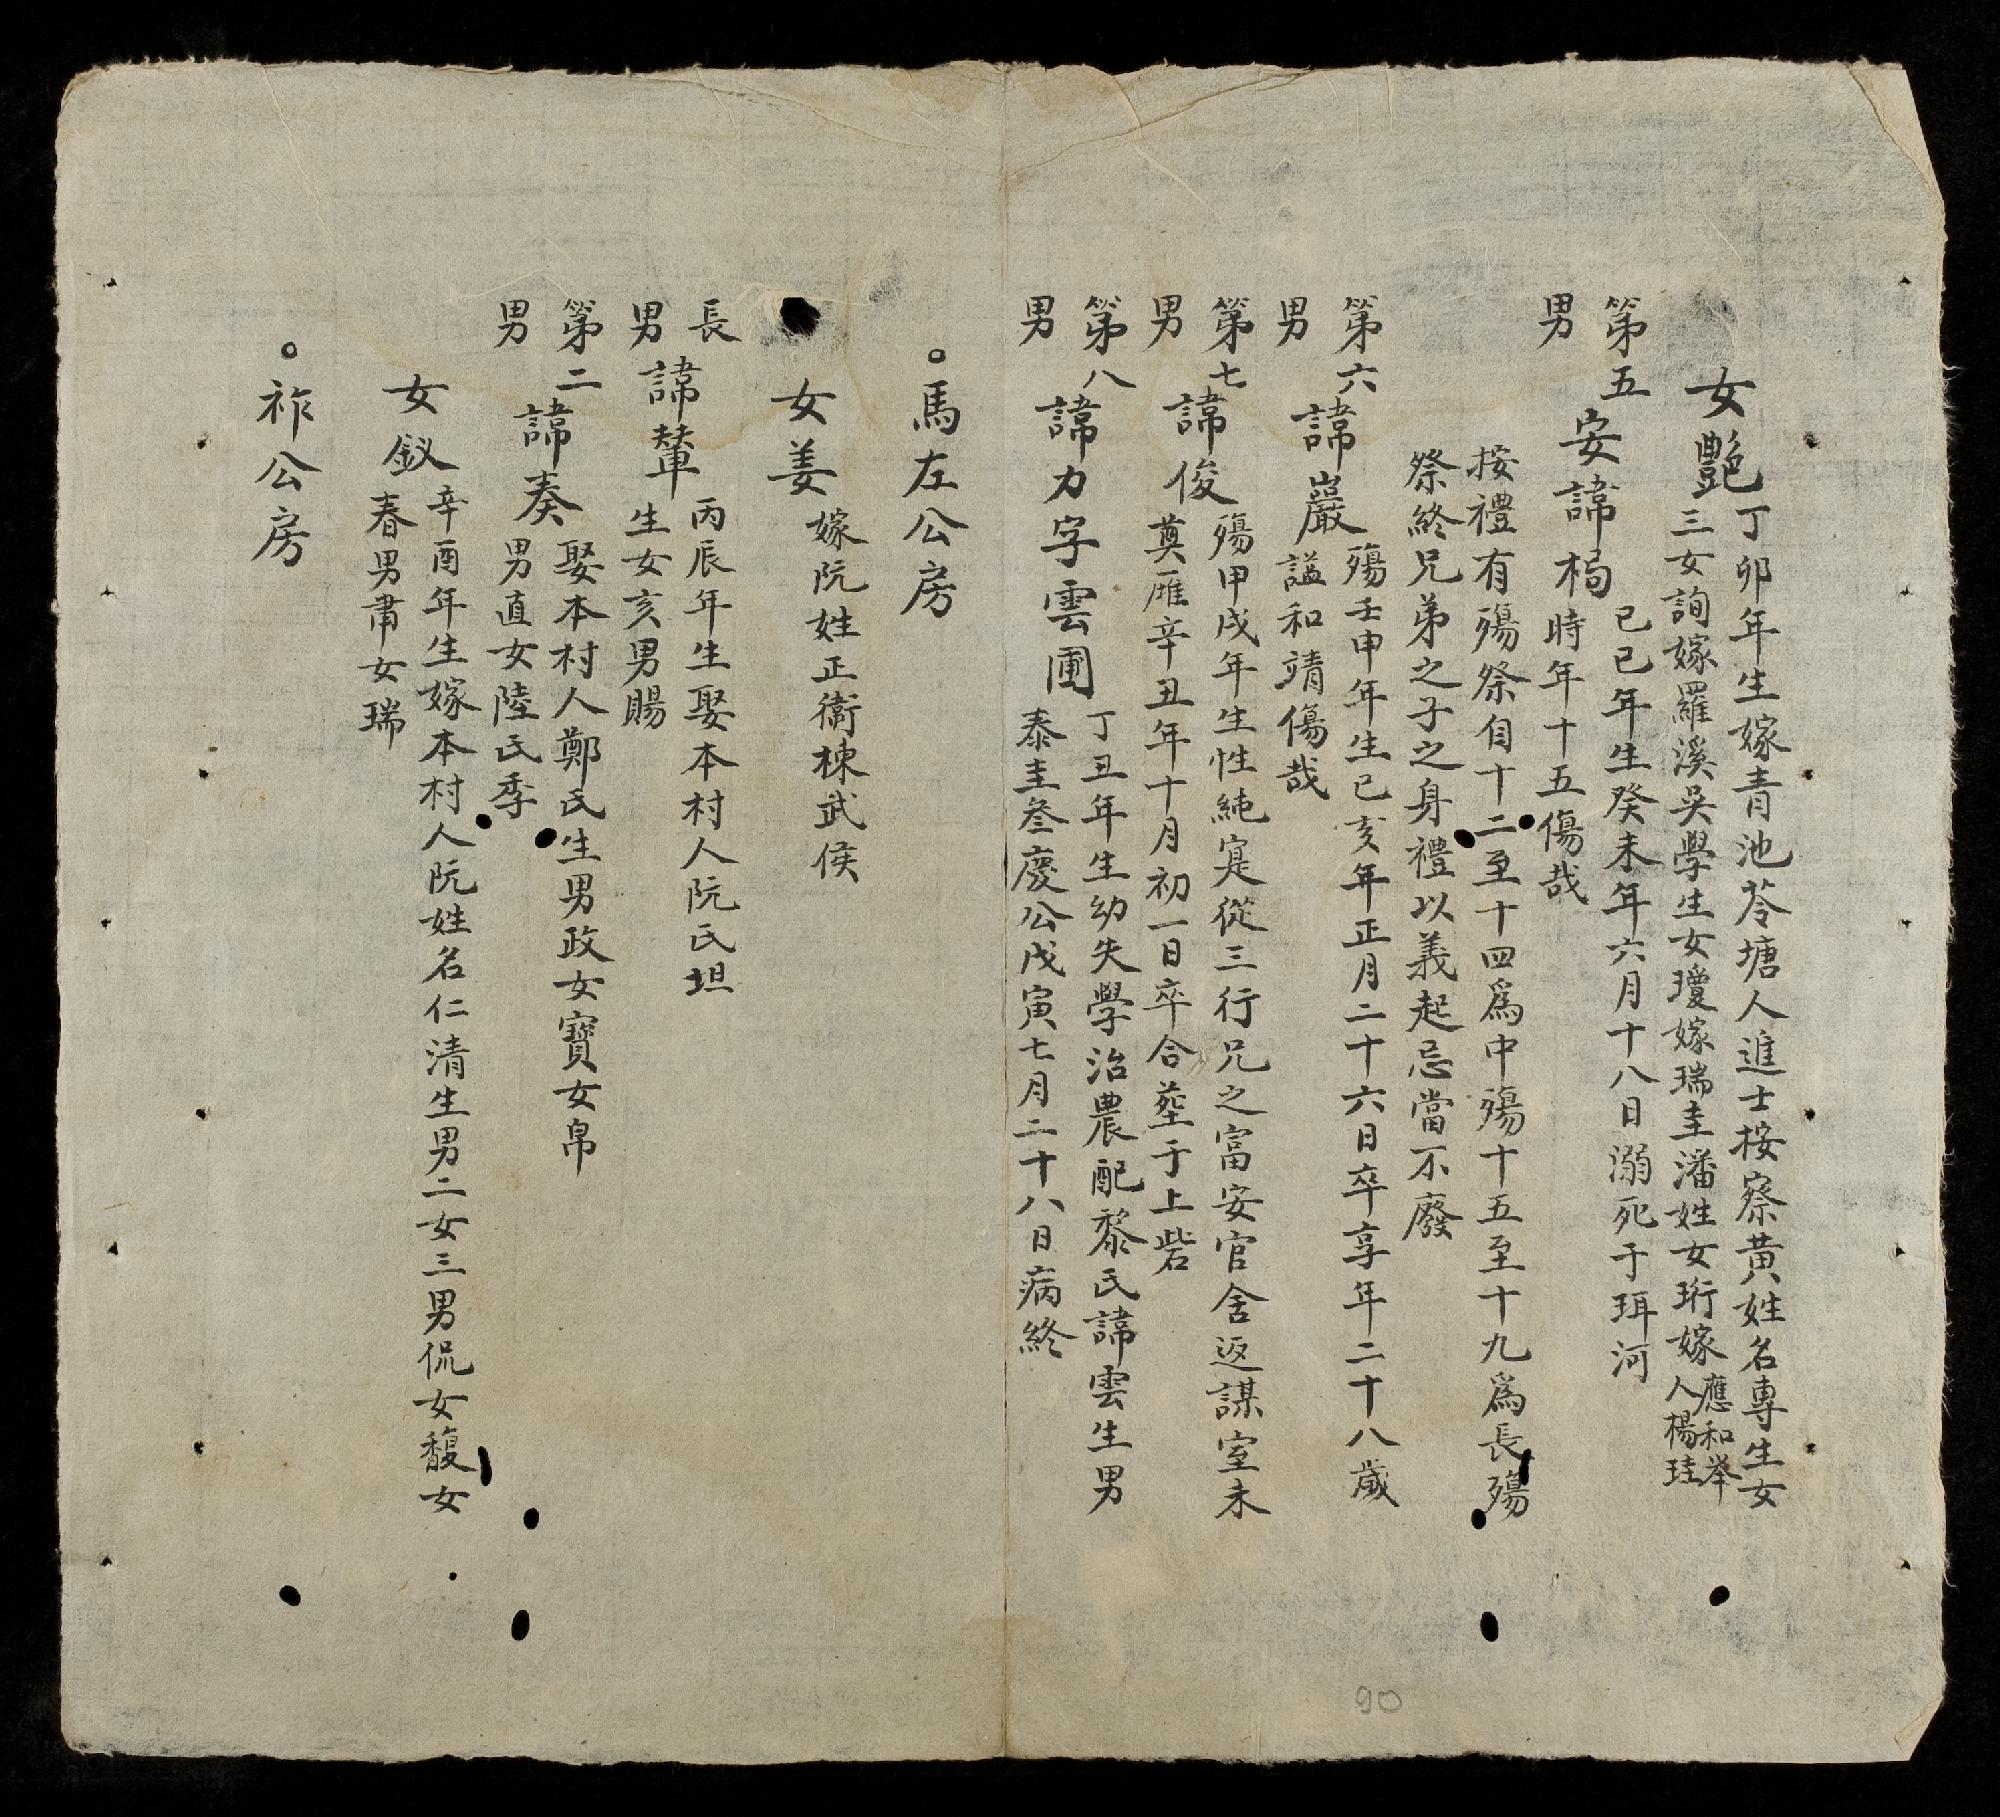 女艷
丁卯年生嫁青池苓塘人進士桉察黄姓名專生女
三女詢嫁羅溪吳學生女瓊嫁瑞圭潘姓女珩嫁
應和举
人楊珪
第五
男
安諱梮
己巳年生癸未年六月十八日溺死于珥河
時年十五傷哉
按禮有殤祭自十二至十四爲中殤十五至十九爲長殤
祭終兄弟之子之身禮以義起忌當不廢
第六
男
諱巖
殤壬申年生己亥年正月二十六日卒享年二十八歲
謚和靖傷哉
第七
男
諱俊
殤甲戌年生性純寔從三行兄之富安官舍返謀室未
奠雁辛丑年十月初一日卒合塟于上砦
第八
男
諱力字雲圃
丁丑年生幼失學治農配黎氏諱雲生男
泰圭叄慶公戊寅七月二十八日病終
。馬左公房
女姜
嫁阮姓正衛棟武侯
長
男
諱輦
丙辰年生娶本村人阮氏坦
生女亥男賜
第二
男
諱奏
娶本村人鄭氏生男政女寶女帛
男直女陸氏季
女釵
辛酉年生嫁本村人阮姓名仁清生男二女三男侃女馥女
春男肅女瑞
。祚公房
90